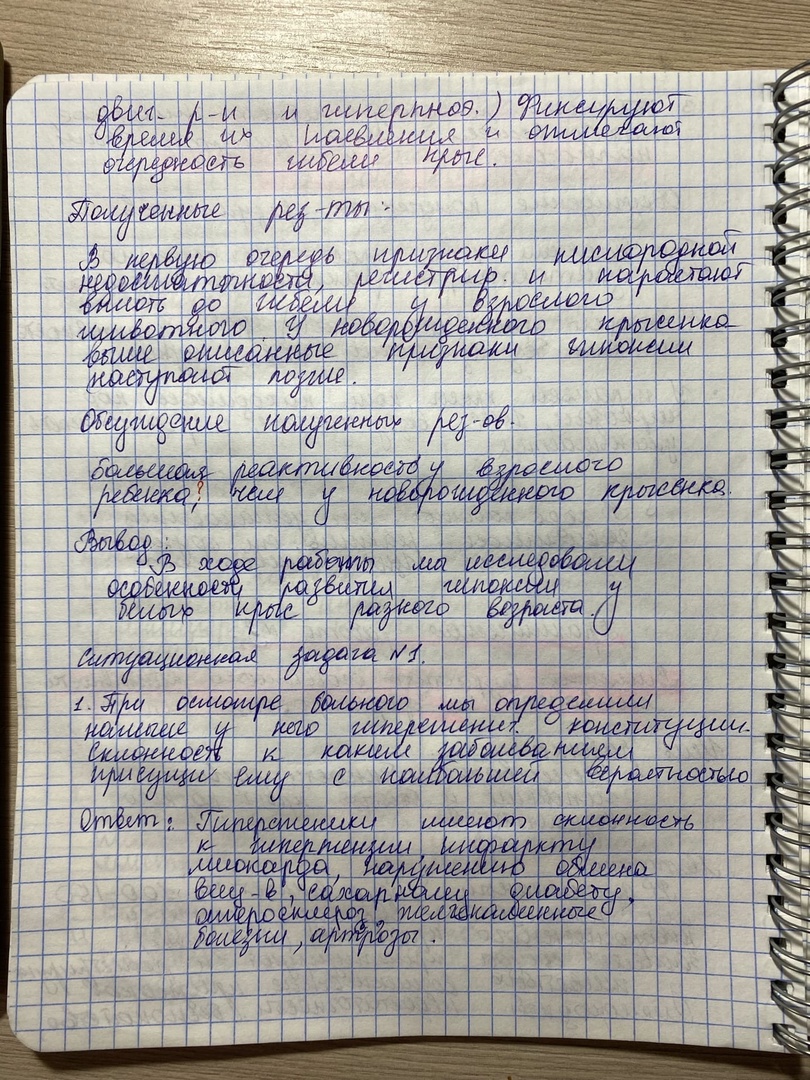 двиг. р-и и гиперпноэ.) Фиксируют
время их появления и отмечают
очередность гибели крыс.
Полученные рез-ты:
В первую очередь признаки кислородной
недостаточности, регистрир. и нарастают
вплоть до гибели у взрослого
животного. У новорожденного крысенка
выше описанные признаки гипоксии
наступают позже.
Обсуждение полученных рез-ов.
Большая реактивность у взрослого
ребенка?, чем у новорожденного крысенка.
Вывод:
В ходе работы мы исследовали
особенности развития гипоксии у
белых крыс разного возраста.
Ситуационная задача №1.
1. При осмотре больного мы определили
наличие у него гиперстенич. конституции.
Склонность к каким заболеванием
присущи ему с наибольшей вероятностью
Ответ: Гиперстеники имеют склонность
к гипертензии, инфаркту
миокарда, нарушению обмена
вещ-в, сахарному диабету,
атеросклероз, желчекаменные
болезни, артрозы.